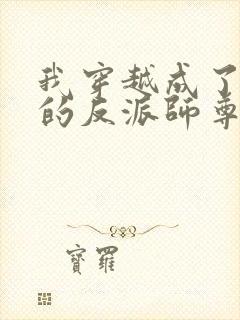 我穿越成了
的反派師尊
寶羅